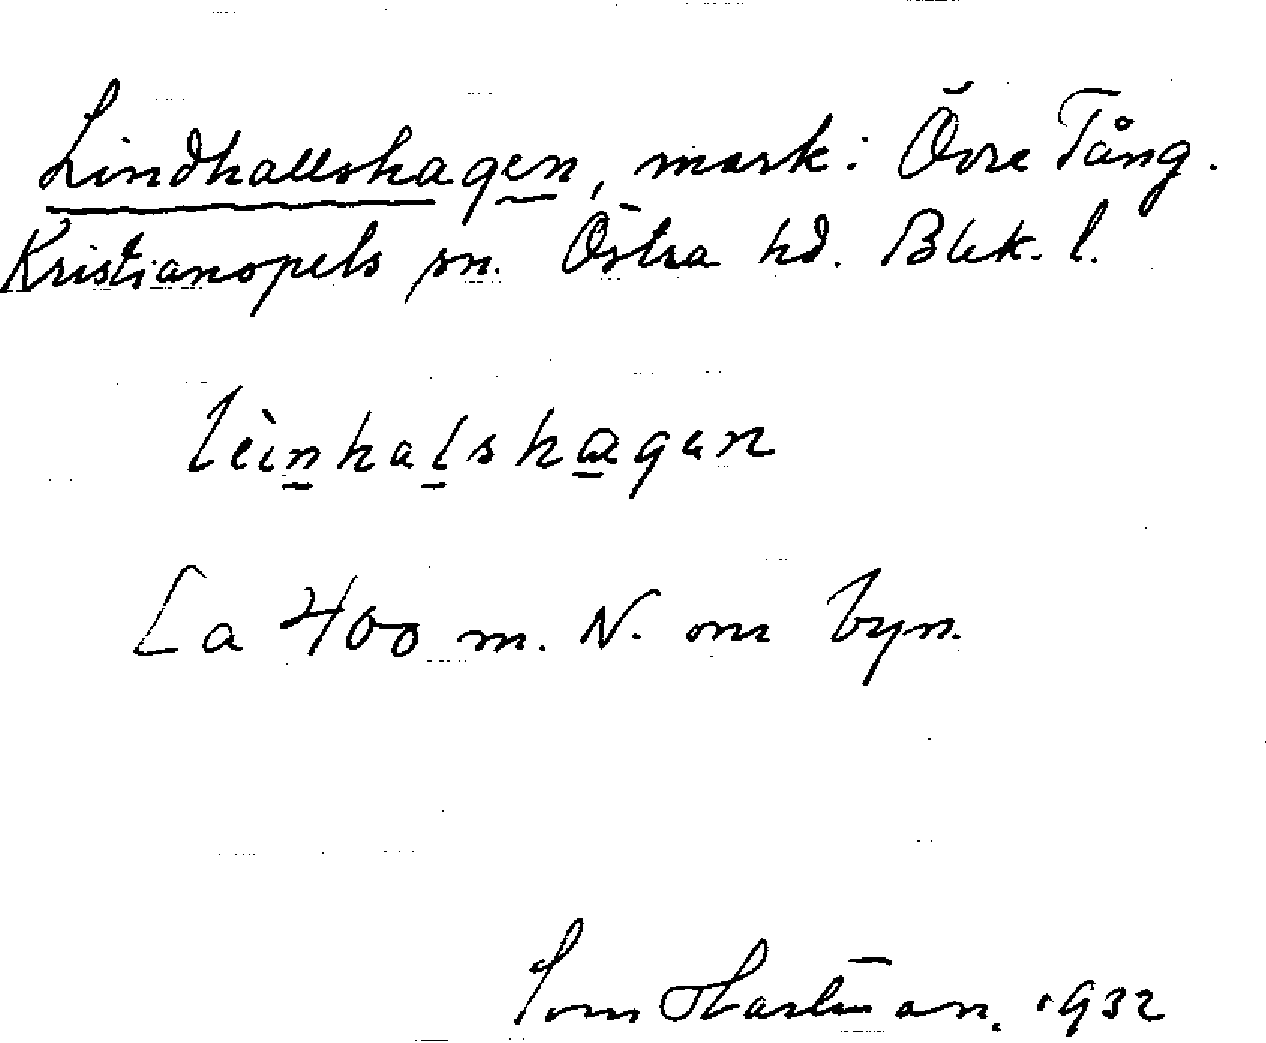 Lindhallshagen, mark: Övre Tång.
Kristianopels sn. Östra hd. Blek. l.
leìnhalshagen
Ca 400 m. N. om byn.
Tom Hartman. 1932